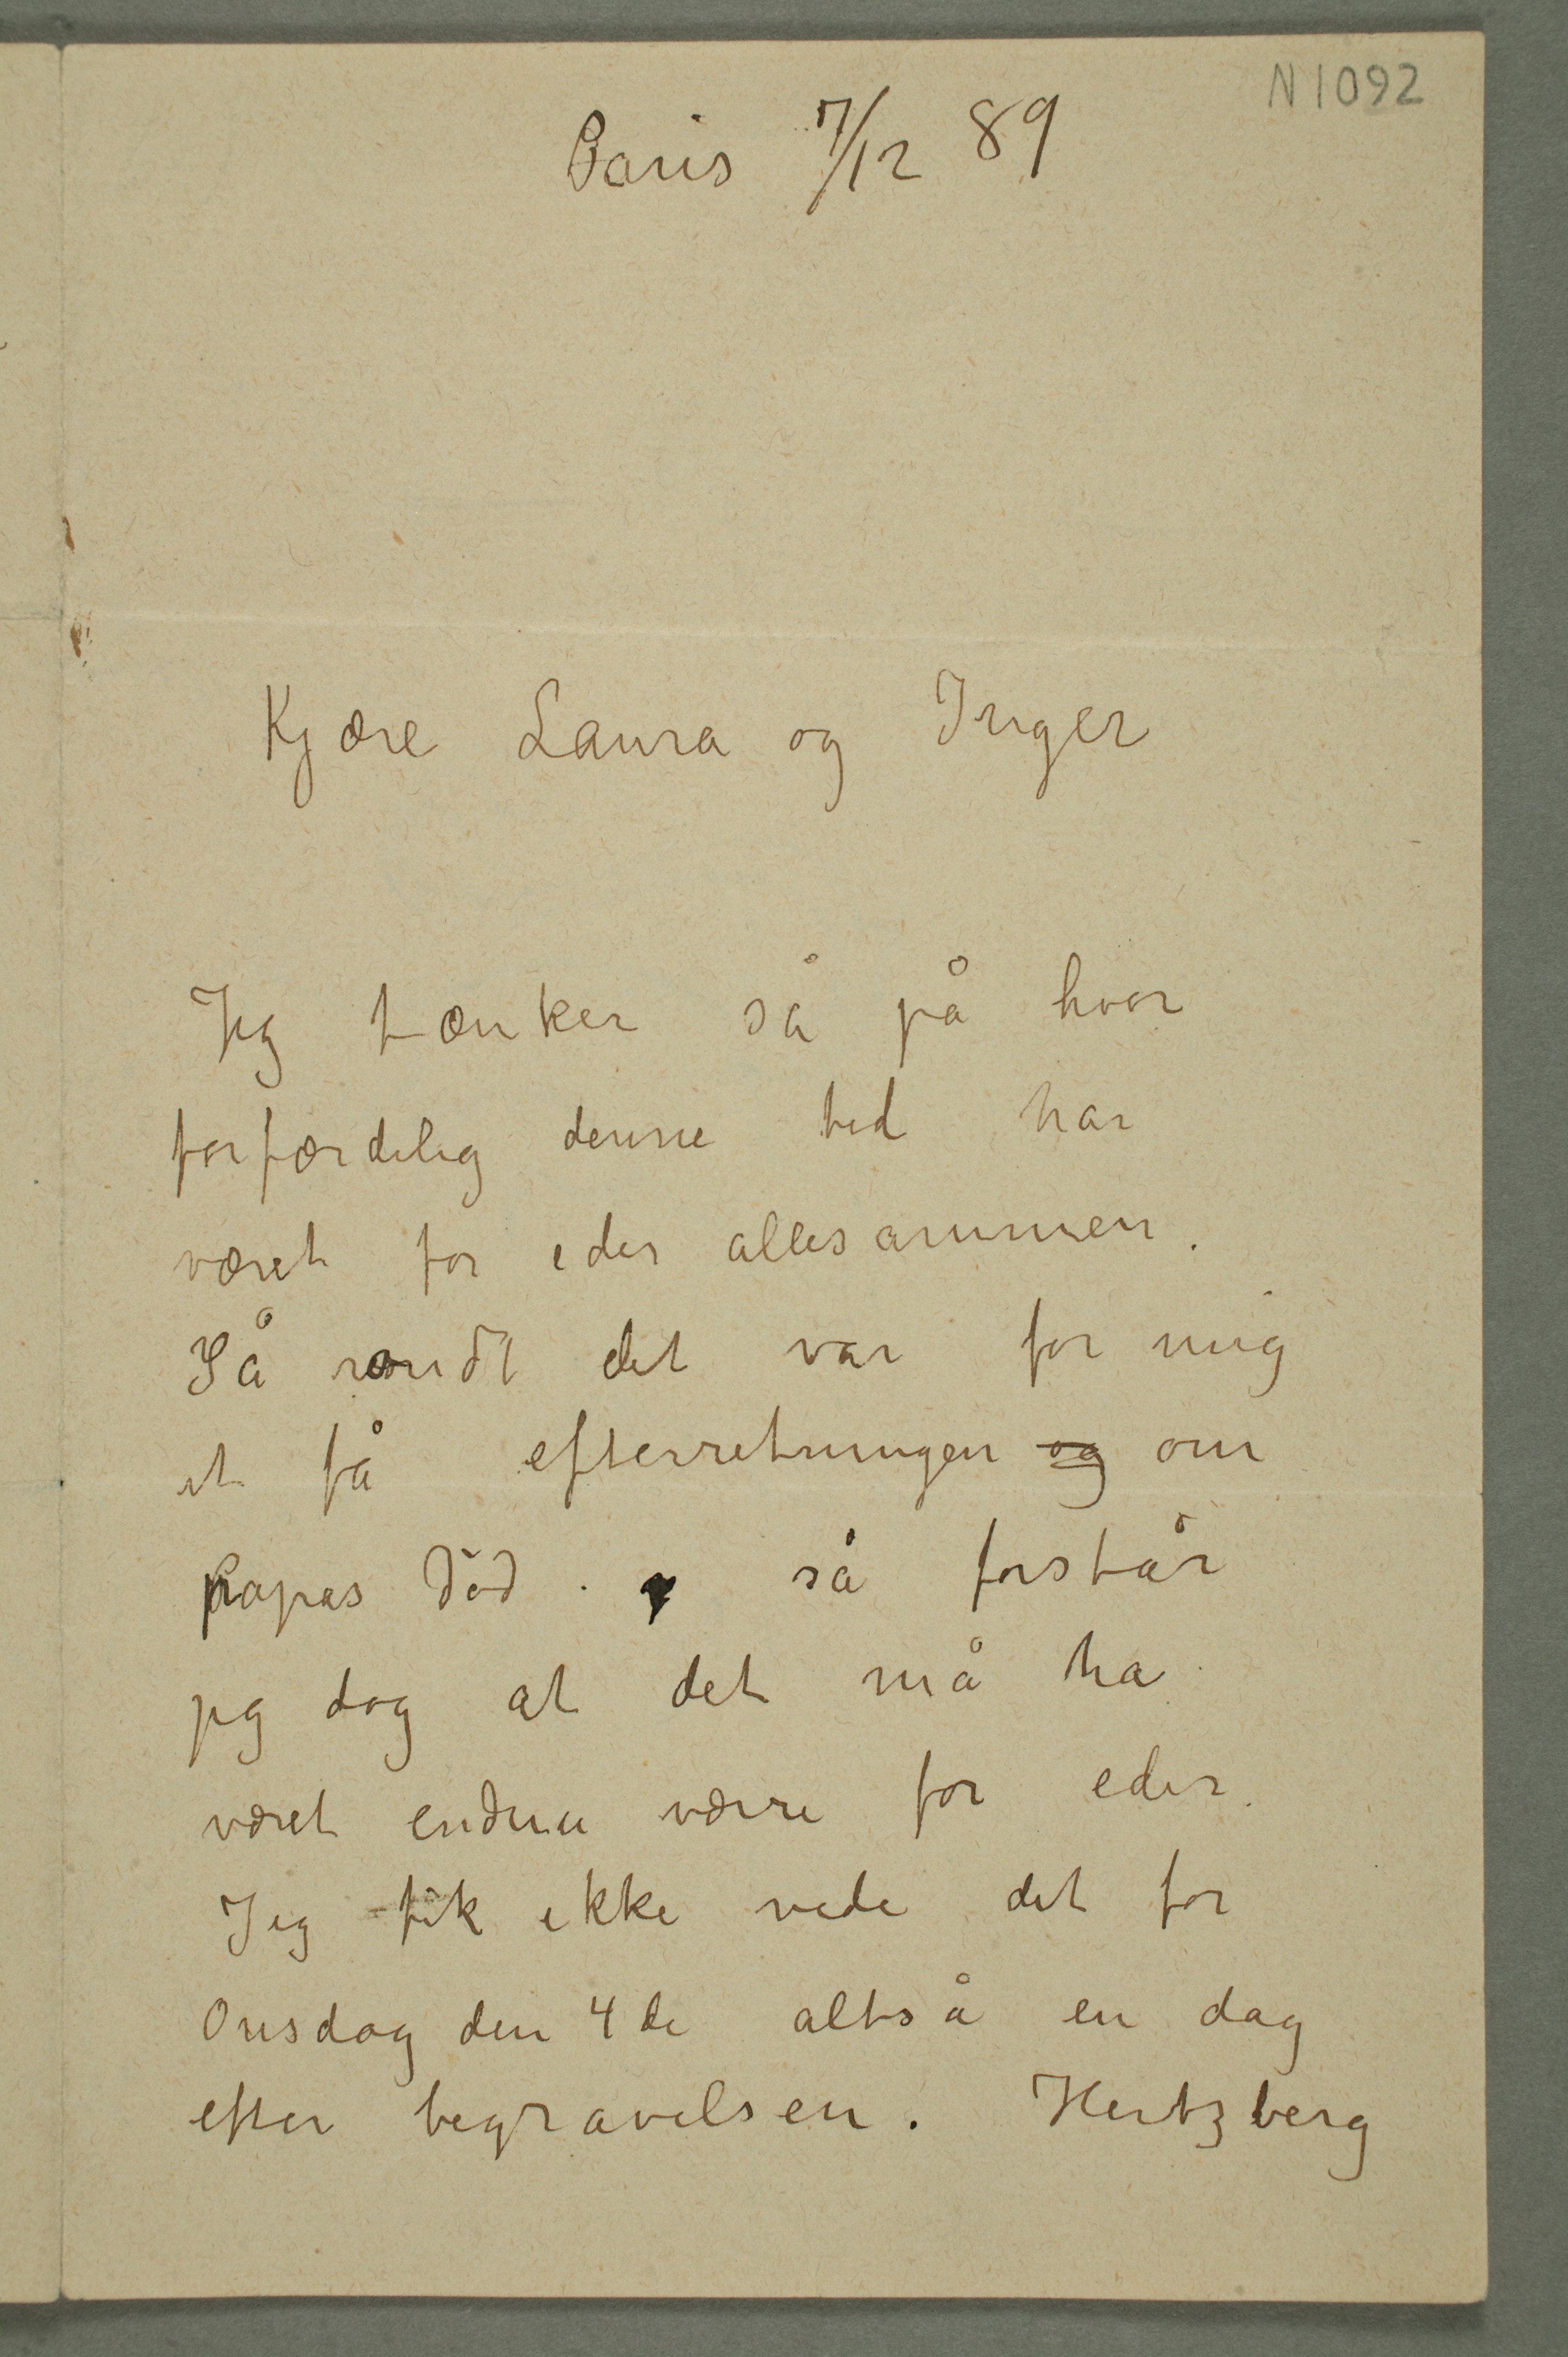 N 1092
Paris 7/12 89
Kjære Laura og Inger
Jeg tænker så på hvor
forfærdelig denne tid har
været for eder allesammen.
Så ondt det var for mig
at få efterretningen og om
papas død. så forstår
jeg dog at det må ha
været endnu værre for eder.
Jeg fik ikke vide det før
Onsdag den 4de altså en dag
efter begravelsen. Hertzberg